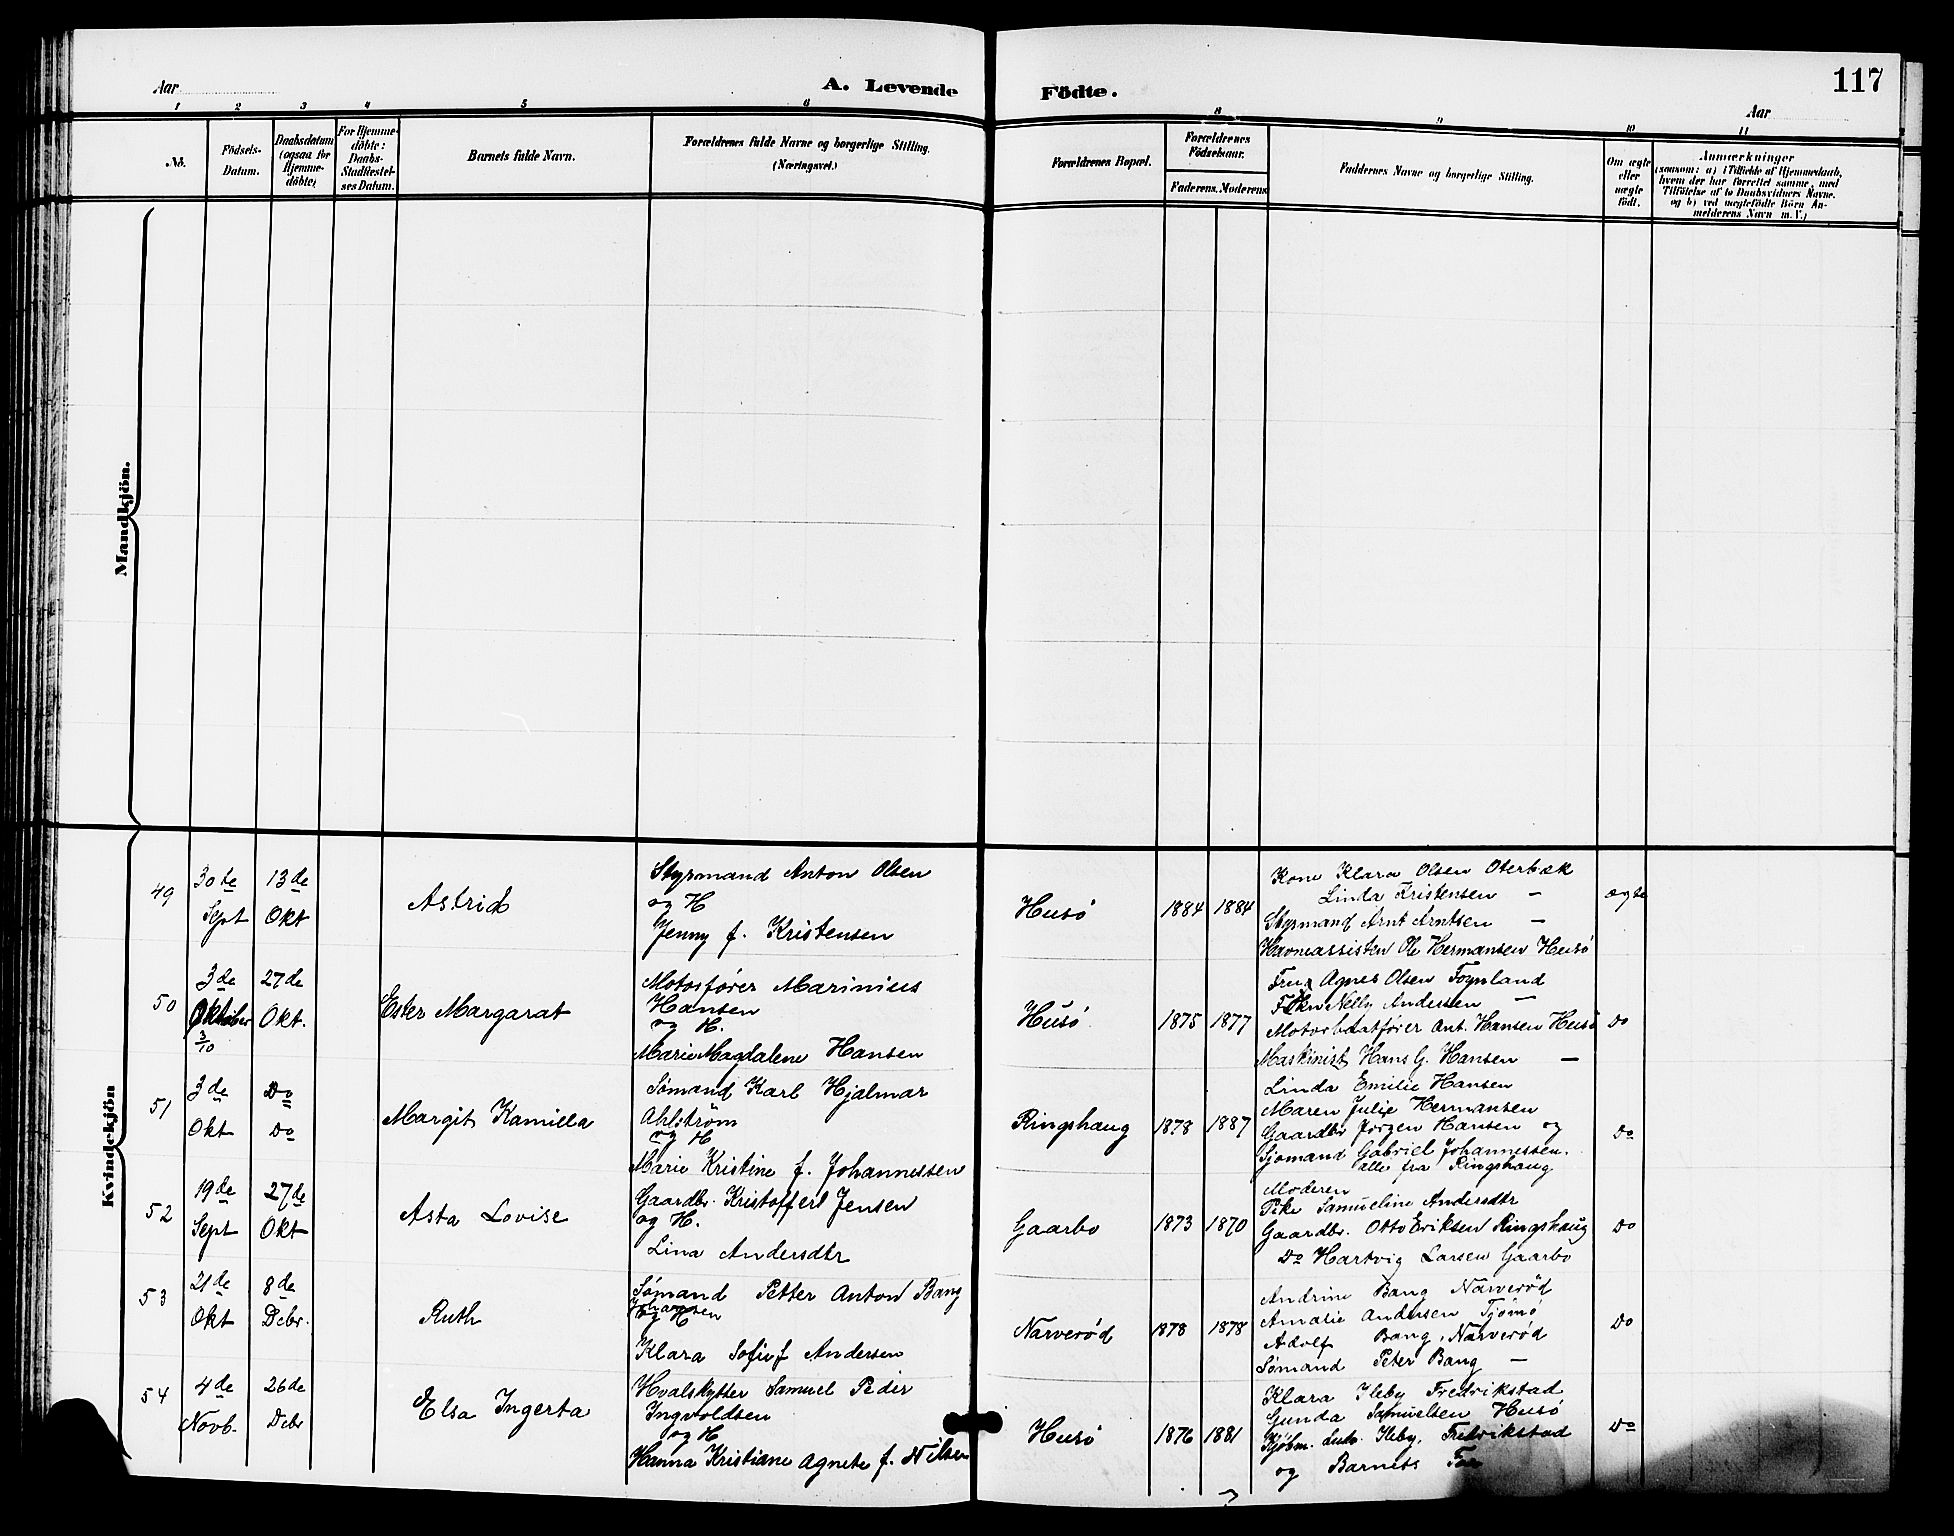 Aar
A. Levende
Födte.
117
Aar
1 2 3 4 5 6 8 9 10 11
No.
Födsels-
Datum.
Daabsdatum
(ogsaa for
Hjemme-
döbte)
For Hjemme-
döbte:
Daabs-
Stadfæstel-
ses Datum.
Barnets fulde Navn.
Forældrenes fulde Navne og borgerlige Stilling.
(Næringsvei.)
Forældrenes Bopæl.
Forældrenes
Födselsaar.
Faderens. Moderens
Faddernes Navne og borgerlige Stilling.
Om ægte
eller
uægte
födt.
Anmærkninger
(saasom: a) i Tilfælde af Hjemmedaab,
hvem der har forrettet samme, med
Tilföielse af to Daabsvidners Navne.
og b) ved uægtefödte Börn An-
melderens Navn m. V.)
Mandkjön.
Kvindekjön
49
30te
Sept
13de
Okt
Astrid
Styrmand Anton Olsen
og H
Jenny f. Kristensen
Husö
1884 1884
Kone Klara Olsen Oterbæk
Linda Kristensen —
Styrmand Arnt Arntsen —
Havneassisten Ole Hermansen Husö
ægte
50
3de
Oktober
3/10
27de
Okt.
Ester Margarat
Motorfører Marinius
Hansen
og H.
Marie Magdalene Hansen
Husö
1875 1877
Frue Agnes Olsen Foynland
Frkn Nelly Andersen —
Motorbaatfører Ant. Hansen Husö
Maskinist Hans G. Hansen —
Do
51
3de
Okt
Do
Do
Margit Kamilla
Sømand Karl Hjalmar
Ahlström
og H
Marie Kristine f. Johannessen
Ringshaug
1878 1887
Linda Emilie Hansen
Maren Julie Hermansen
Gaardbr Jørgen Hansen og
Sjomand Gabriel Johannessen.
alle fra Ringshaug
Do
52
19de
Sept
27de
Okt
Asta Lovise
Gaardbr. Kristoffer Jensen
og H.
Lina Andersdtr
Gaarbo
1873 1870
Moderen
Pike Samueline Andersdtr
Gaardbr. Otto Eriksen Ringshaug
Do Hartvig Larsen Gaarbo
Do
53
21de
Okt
8de
Debr.
Ruth
Sømand Petter Anton Bang
Johansen
og H
Klara Sofie f Andersen
Narverød
1878 1878
Andrine Bang Narverød
Amalie Andersen Tjømø
Adolf Bang, Narverød
Sømand Peter Bang —
Do
54
4de
Novb.
26de
Debr
Elsa Ingerta
Hvalskytter Samuel Peder
Ingvoldsen
og H
Hanna Kristiane Agnete f. Nilsen
Husö
1876 1881
Klara Ileby Fredrikstad
Gunda Samuelsen Husö
Kjøbm. Ludv. Ileby, Fredrikstad
og Barnets Far
Do